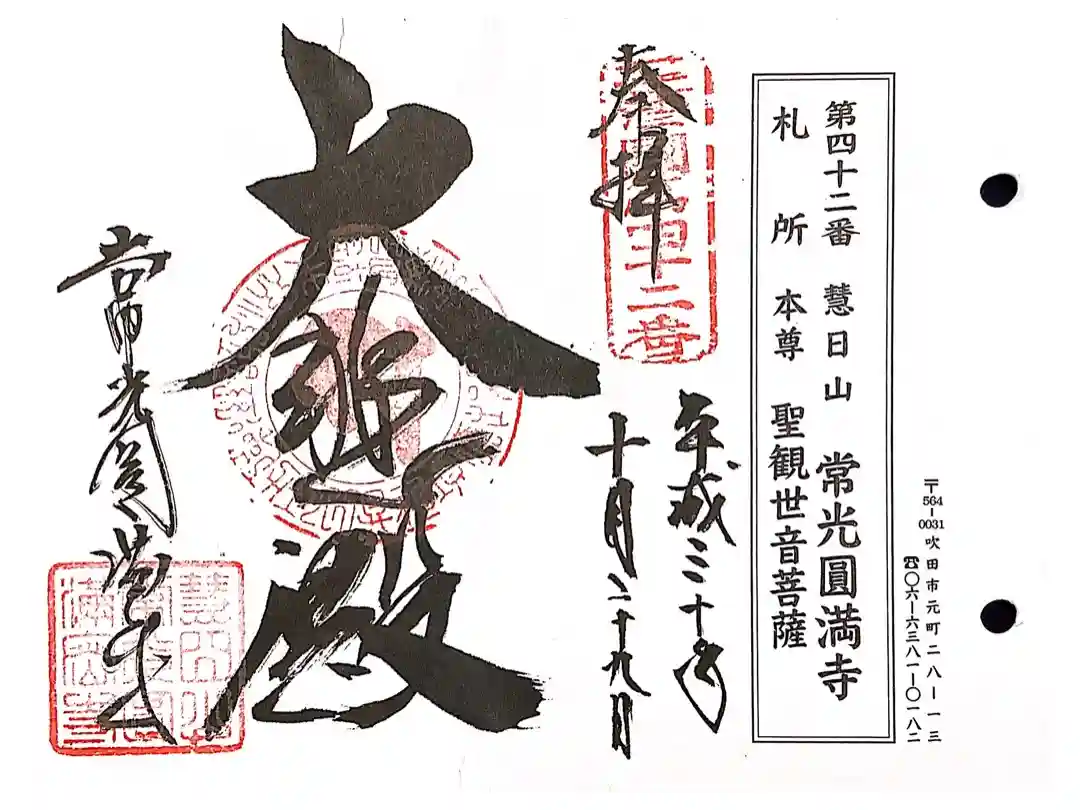 〒564-0031 吹田市元町二八-一三
☎〇六-六三八一-〇一八二
第四十二番 慧日山 常光圓満寺
札所 本尊 聖観世音菩薩
奉拝
平成三十年
十月二十九日
大悲殿
常光圓満寺